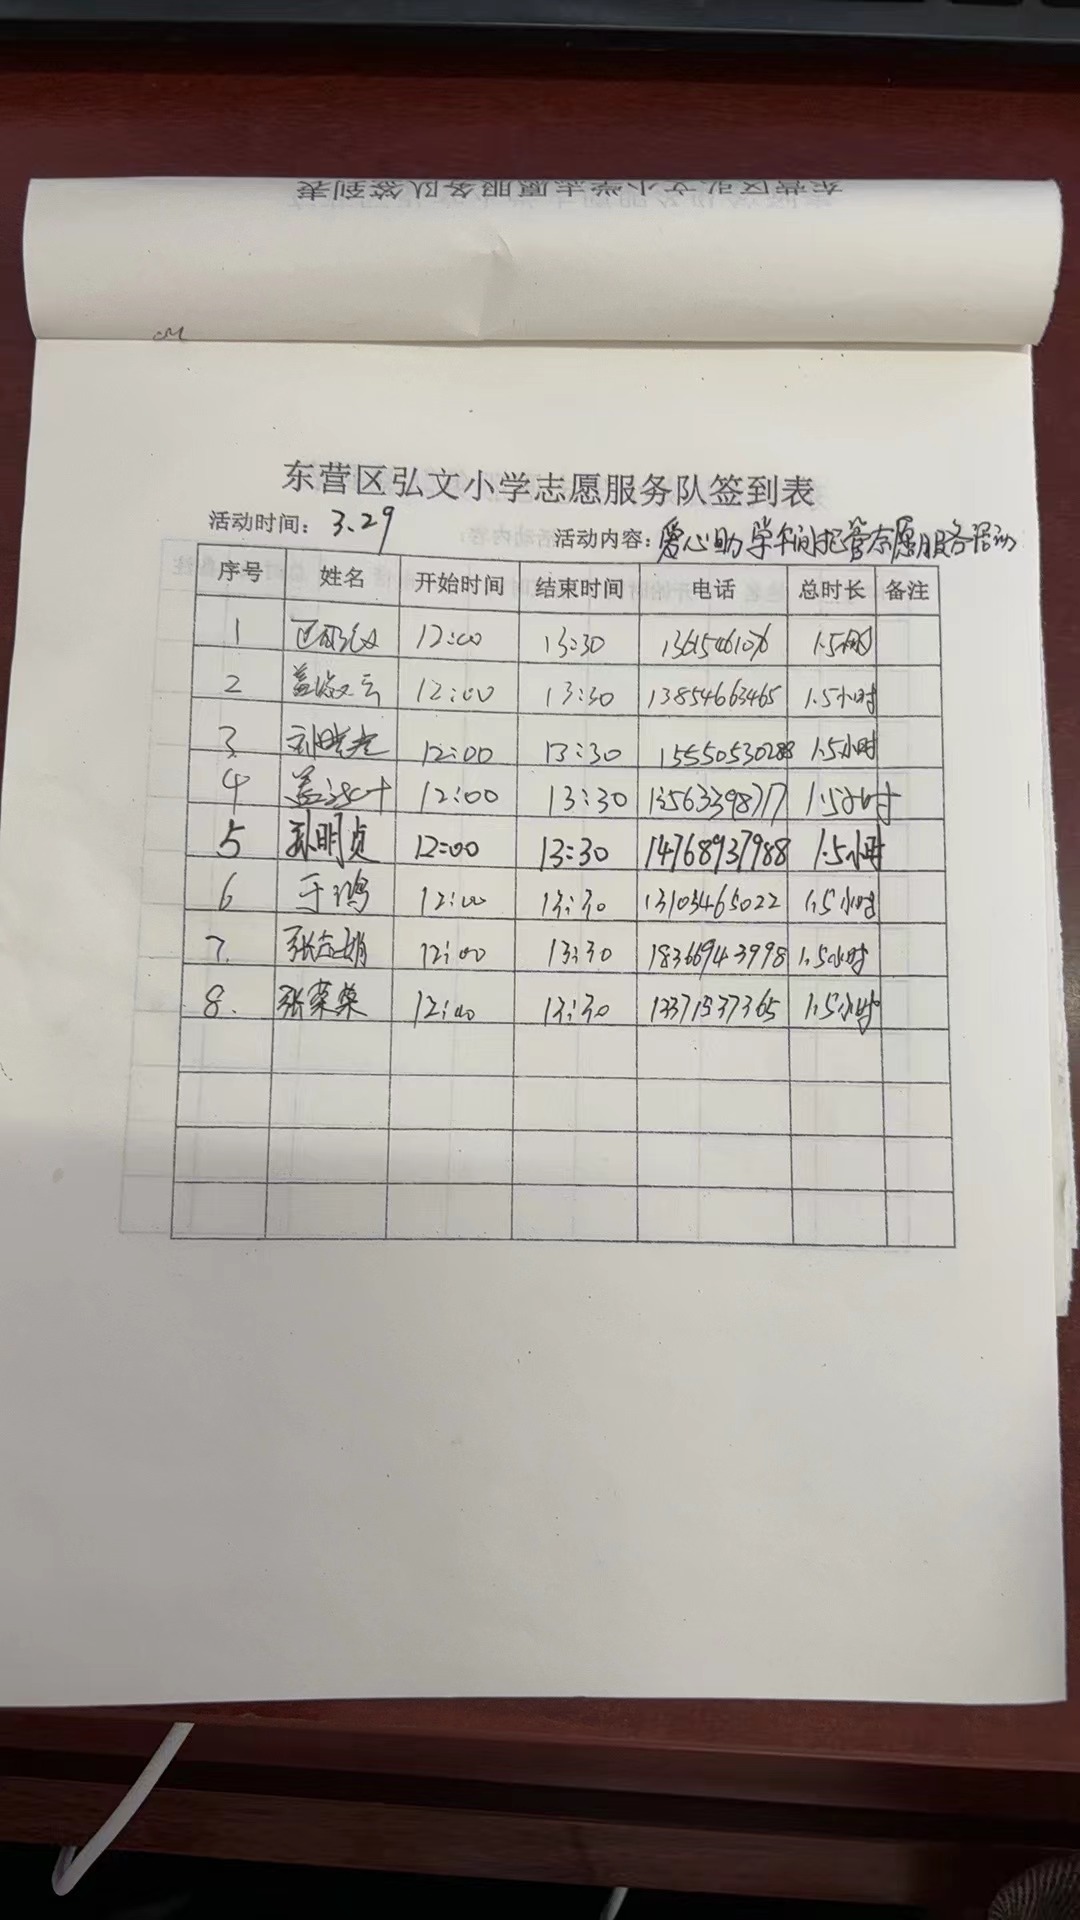 东营区弘文小学志愿服务队签到表
东营区弘文小学志愿服务队签到表
活动时间：3.29 活动内容：爱心助学午间托管志愿服务活动
序号 姓名 开始时间 结束时间 电话 总时长 备注
1 12:00 13:30 1.5小时
2 12:00 13:30 13854663465 1.5小时
3. 刘晓光 12:00 13:30 15550530288 1.5小时
4 12:00 13:30 13563398717 1.5小时
5 孙明贞 12:00 13:30 14768937988 1.5小时
6 于鸿 12:00 13:30 13103465022 1.5小时
7. 张志娟 12:00 13:30 18366943998 1.5小时
8. 张荣燊 12:00 13:30 13371537365 1.5小时